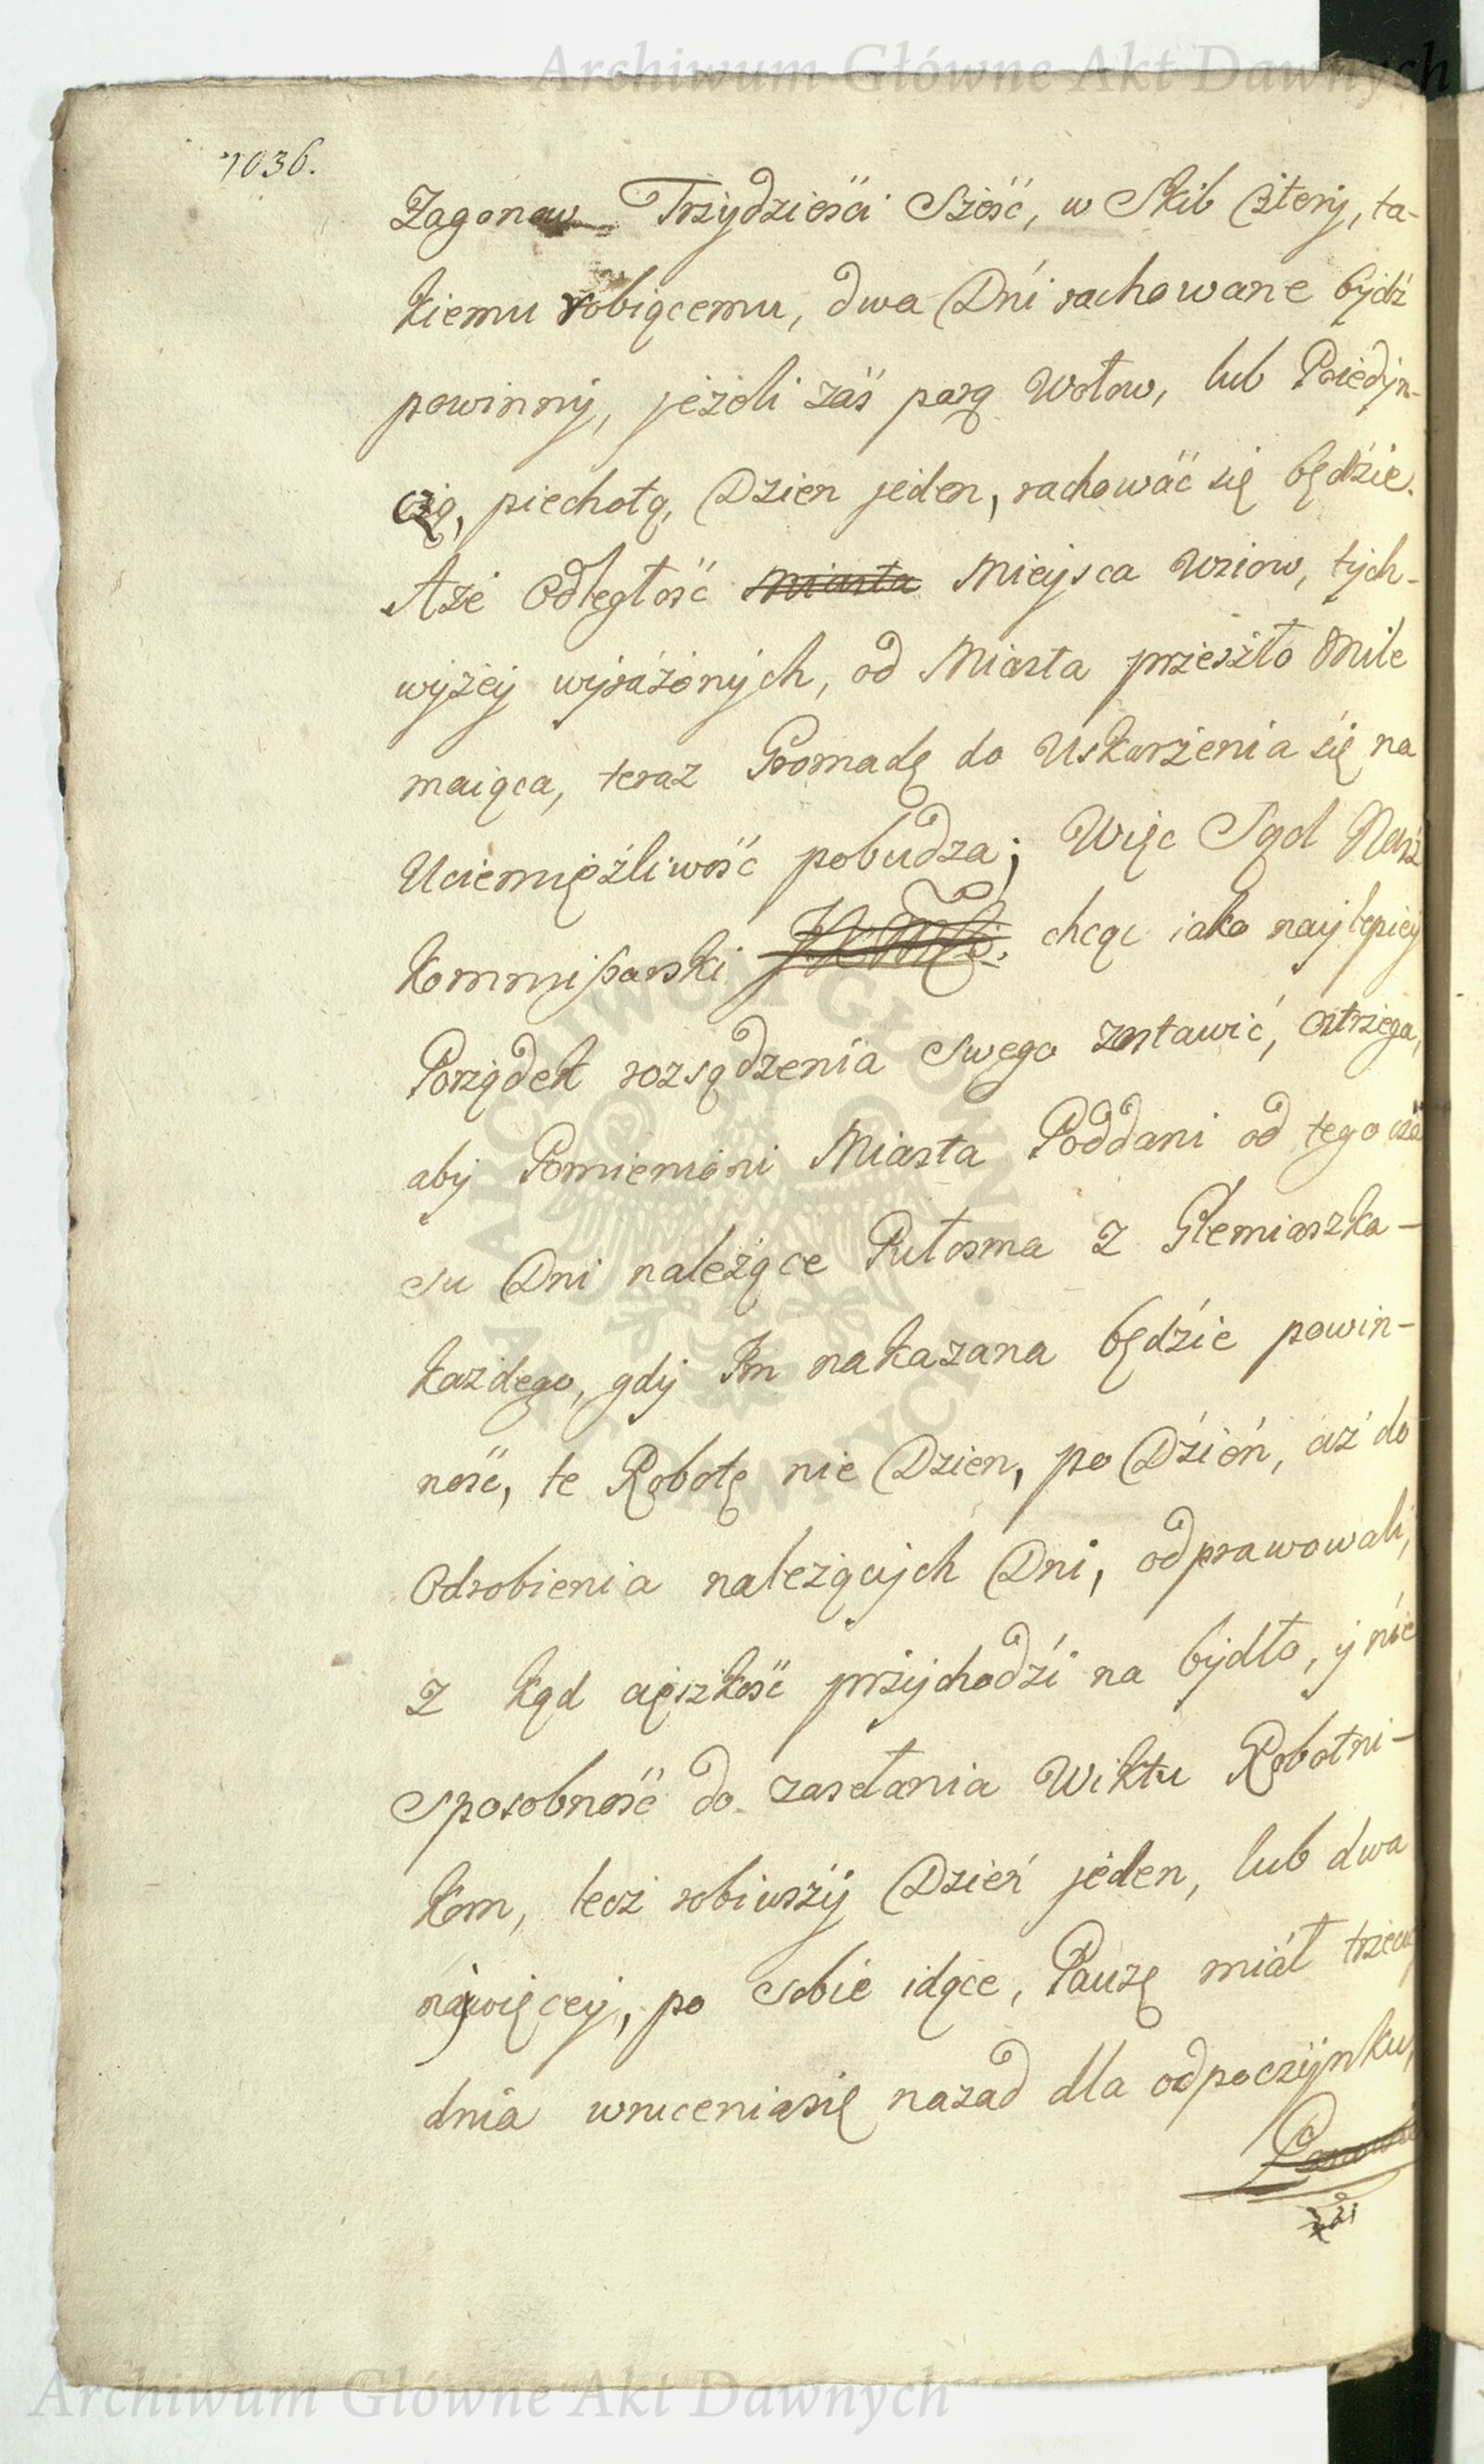 Archiwum Główne Akt Dawnych
1036.
Zagonow Trzydzieści Sześć, w Skib Cztery, ta-
kiemu robiącemu, dwa Dni rachowane bydź
powinny, jeżeli zaś parą Wołow, lub Poiedyn-
czą, piechotą, Dzien jeden, rachować się będzie.
A że Odległość Miasta Mieysca Uziow, tych-
wyżey wyrażonych, od Miasta przeszło Mile
maiąca, teraz Gromadę do Uskarżenia się na
Uciemiężliwość pobudza; Więc Sąd Nasz
Kommissarski chcąc iako naylepiey
Porządek rozsądzenia Swego zostawić, Ostrzega,
aby Pomienieni Miasta Poddani od tego cza
su Dni należące Półosma z Glemiaszka-
każdego, gdy Im nakazana będzie powin-
ność, te Robotę nie Dzien, po Dzień, aż do
Odrobienia należących Dni, odprawowali,
z kąd cięszkość przychodzi na bydło, y nie
sposobność do zasełania Wiktu Robotni-
kom, lecz robiwszy Dzień jeden, lub dwa
naywięcey, po Sobie idące, Pauzę miał trzecie
dnia wruceniasię nazad dla odpoczynku,
ARCHIWUM GŁÓWNE AKT DAWNYCH
Archiwum Główne Akt Dawnych